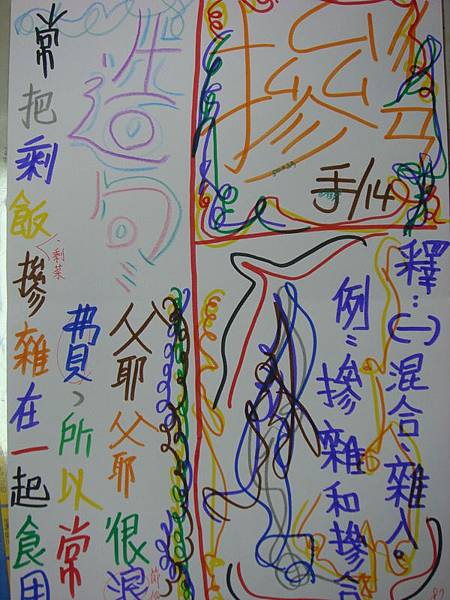 摻
手/14
釋：(一)混合、雜入。
例：摻雜和摻合
造句：
爺爺很浪
費，所以常
常把剩飯摻雜在一起食用
、剩菜